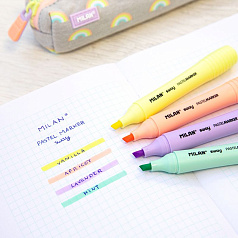 MILAN
MILAN®
PASTEL MARKER
sway
VANILLA
APRICOT
LAVENDER
MINT
MILAN sway PASTELMARKER
MILAN sway PASTELMARKER
MILAN sway PASTELMARKER
MILAN sway